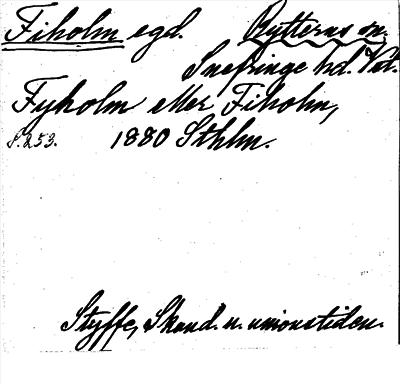 Fiholm egd. Rytterns sn.
Snefringe hd. Vstl.
Fyholm eller Fiholm,
S. 253. 1880 Sthlm.
Styffe, Skand. u. unionstiden.